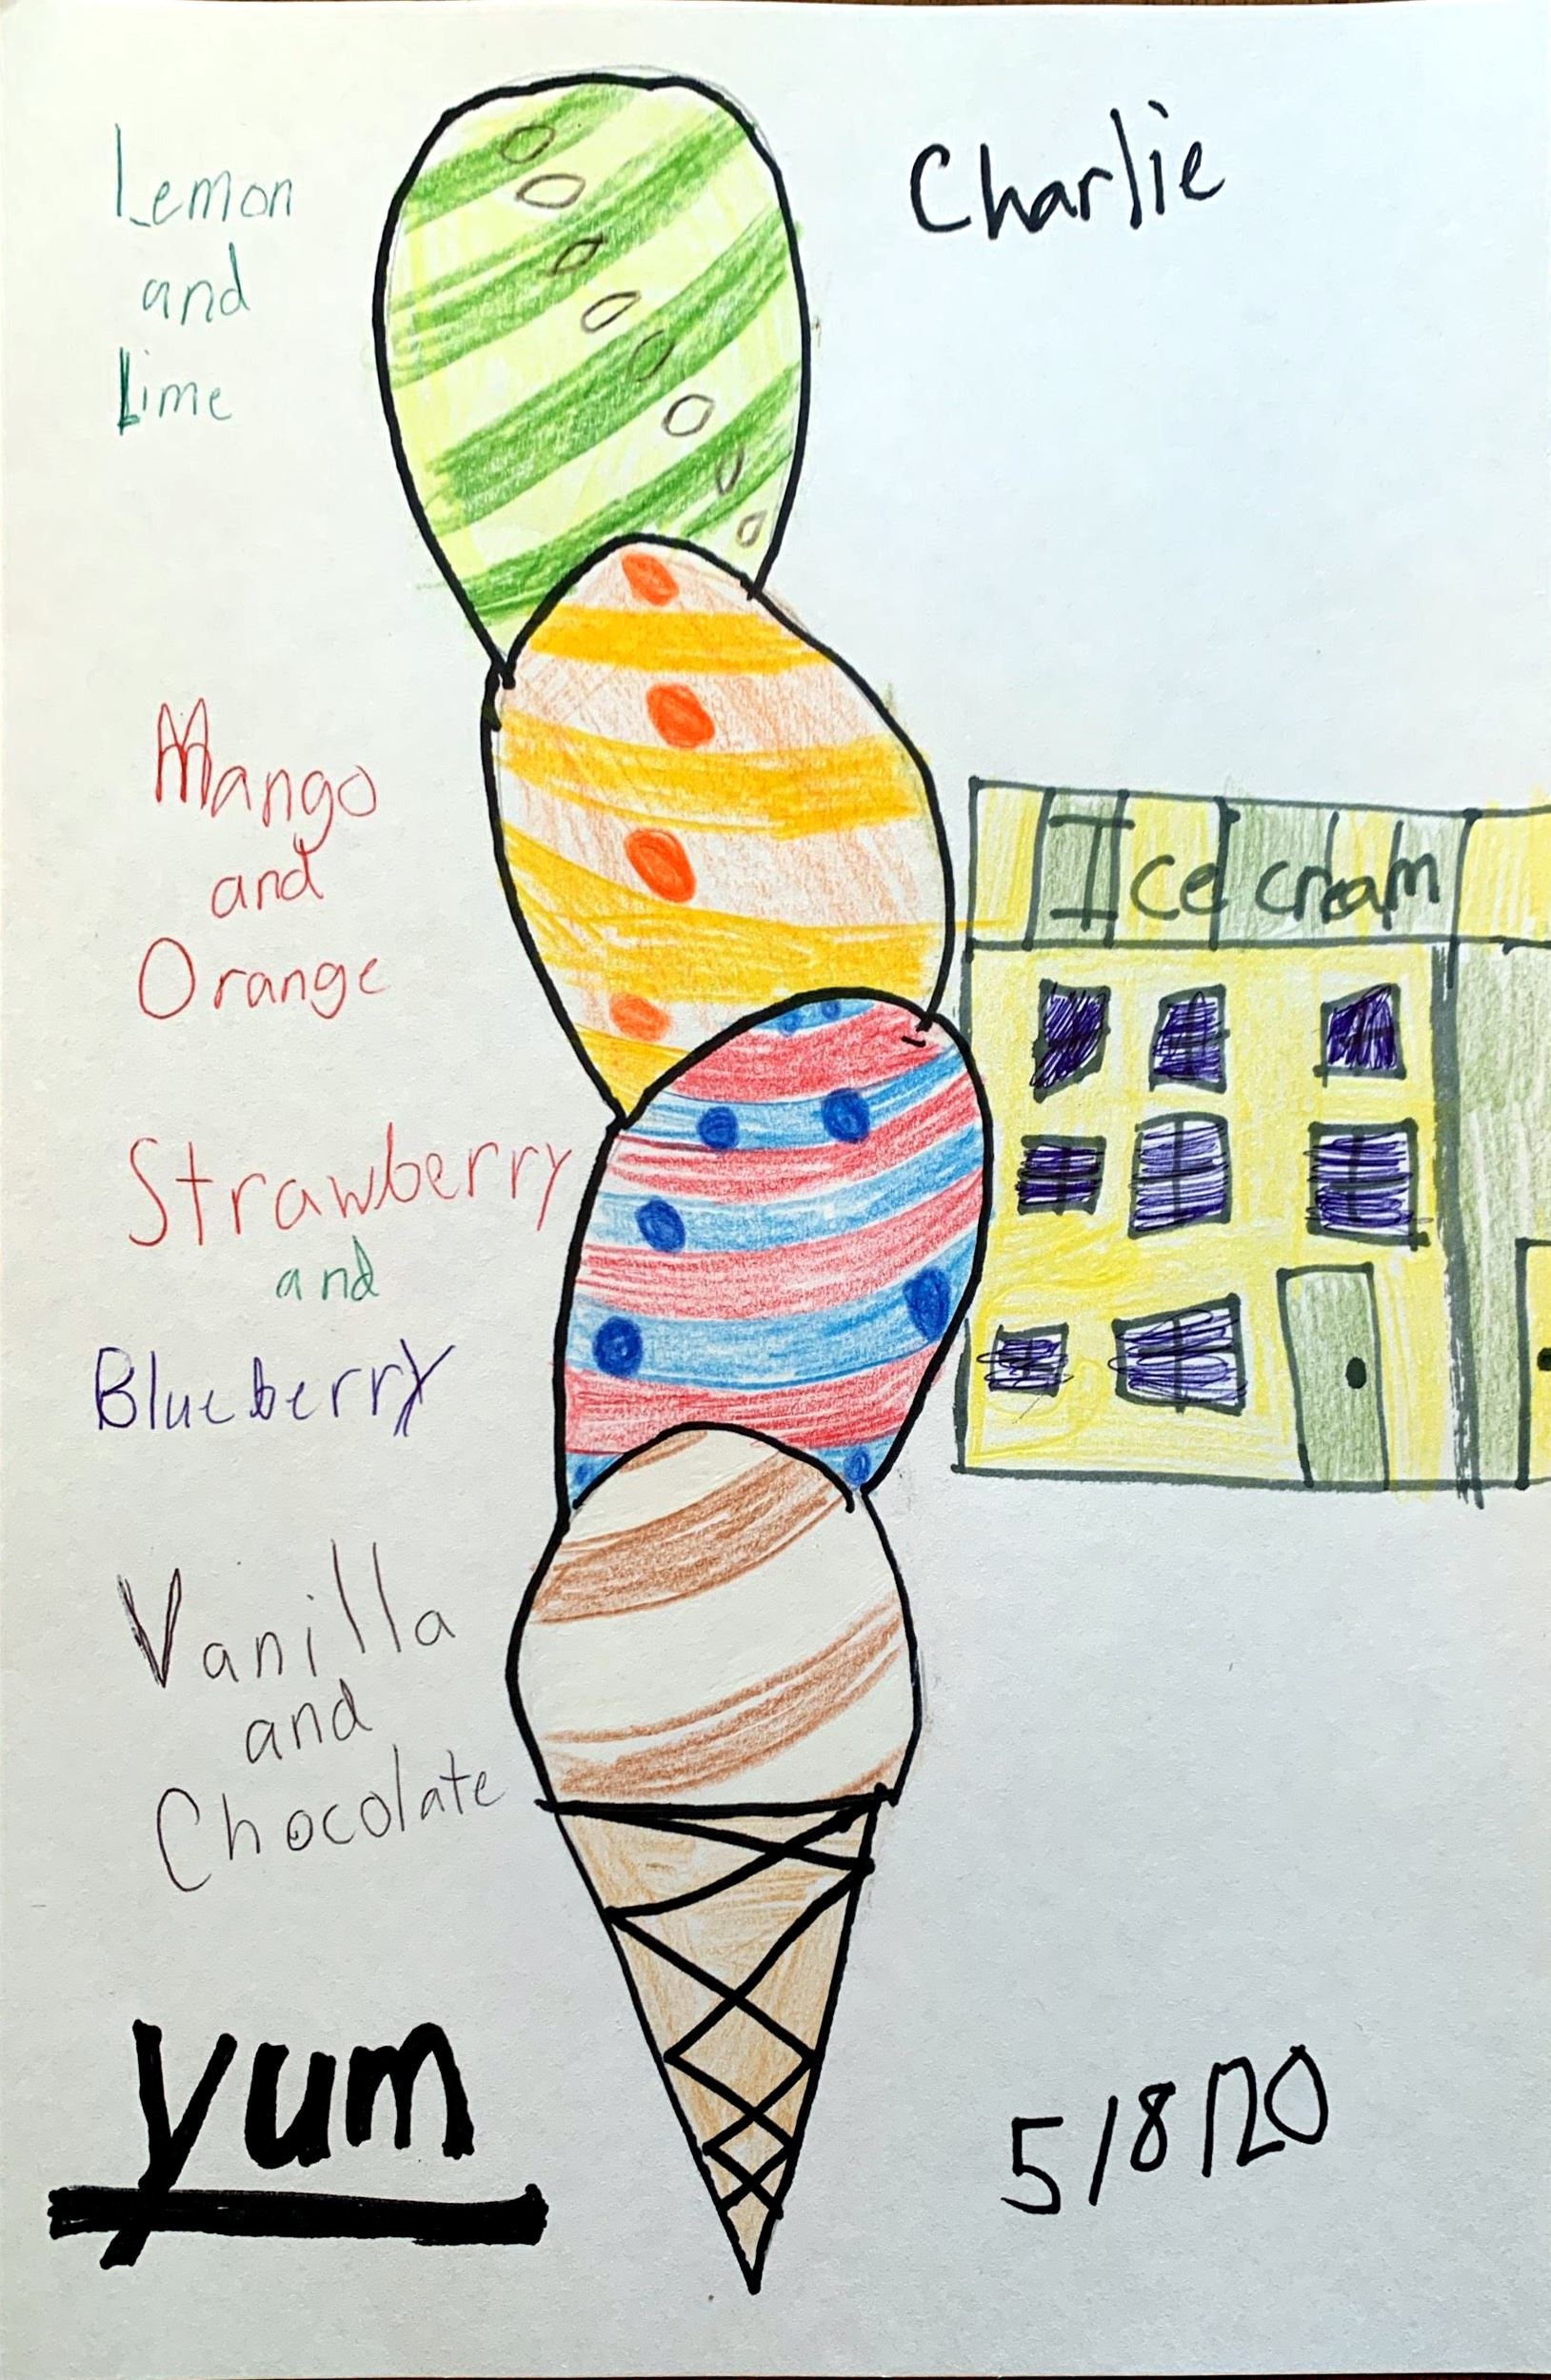 Lemon
and
Lime
Charlie
Mango
and
Orange
Ice cream
Strawberry
and
Blueberry
Vanilla
and
Chocolate
yum
5/8/20